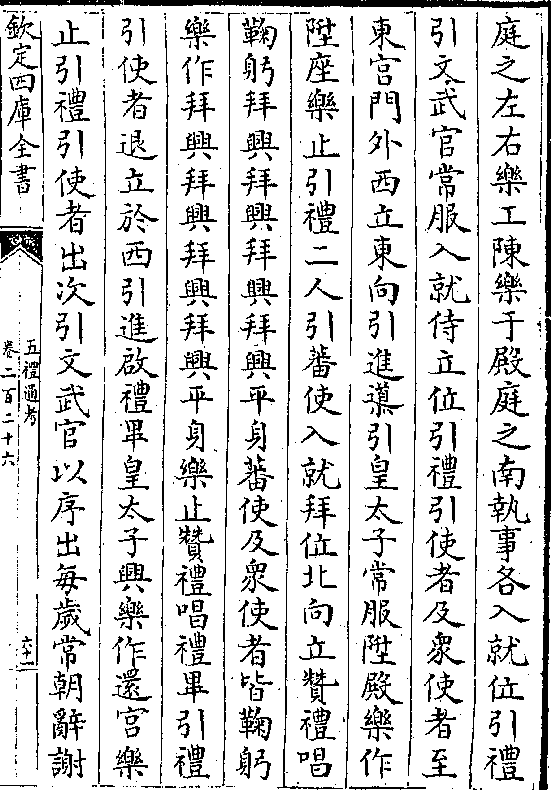 庭之左右樂工陳樂于殿庭之南執事各入就位引禮
引文武官常服入就侍立位引禮引使者及衆使者至
東宫門外西立東向引進導引皇太子常服陞殿樂作
陞座樂止引禮二人引蕃使入就拜位北向立贊禮唱
鞠躬拜興拜興拜興拜興平身蕃使及衆使者皆鞠躬
樂作拜興拜興拜興拜興平身樂止贊禮唱禮畢引禮
引使者退立於西引進啟禮畢皇太子興樂作還宫樂
止引禮引使者出次引文武官以序出每歲常朝辭謝
欽定四庫全書
五禮通考
卷二百二十六
六十一